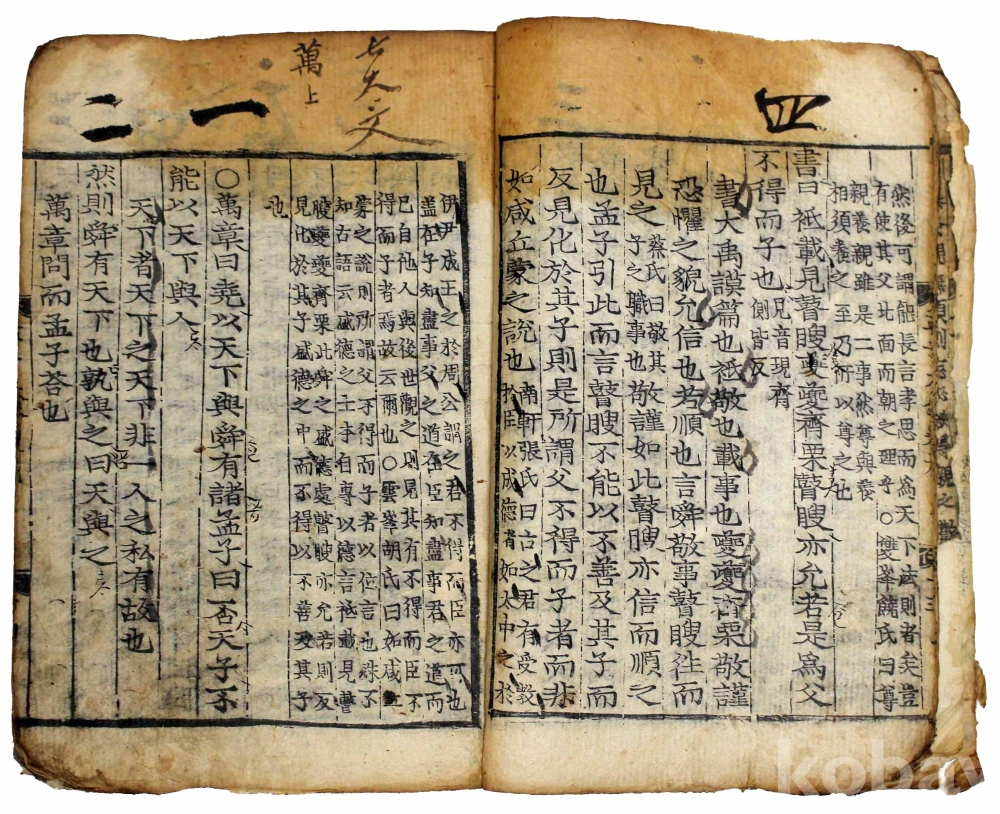 四
然後可謂能長言孝思而為天下法則者矣豈
有使其父北面而朝之理乎○雙峯饒氏曰尊
親養親雖是二事然尊與養
相須養之至乃所以尊之也
書曰祗載見瞽瞍夔夔齊栗瞽瞍亦允若是為父
不得而子也見音現齊側皆反
書大禹謨篇也祗敬也載事也夔夔齊栗敬謹
恐懼之貌允信也若順也言舜敬事瞽瞍往而
見之蔡氏曰敬其子職事也敬謹如此瞽瞍亦信而順之
也孟子引此而言瞽瞍不能以不善及其子而
反見化於其子則是所謂父不得而子者而非
如咸丘蒙之說也南軒張氏曰古之君有受教於臣以成德者如太甲之於
七大文
萬上
一
二
伊尹成王之於周公謂之君不得而臣亦可也
盖在子知盡事父之道在臣知盡事君之道而
已自他人與後世觀之則見其有不得而臣不
得而子者焉故云爾也○雲峯胡氏曰如咸丘
蒙之說則所謂父不得而子者以位言也殊不
知古語云盛德之士本自尊以德言祗載見瞽
瞍夔夔齊栗此舜之盛德處瞽瞍亦允若則反
見化於其子盛德之中而不得以不善及其子
也
○萬章曰堯以天下與舜有諸孟子曰否天子不
能以天下與人
天下者天下之天下非一人之私有故也
然則舜有天下也孰與之曰天與之
萬章問而孟子荅也
kobay